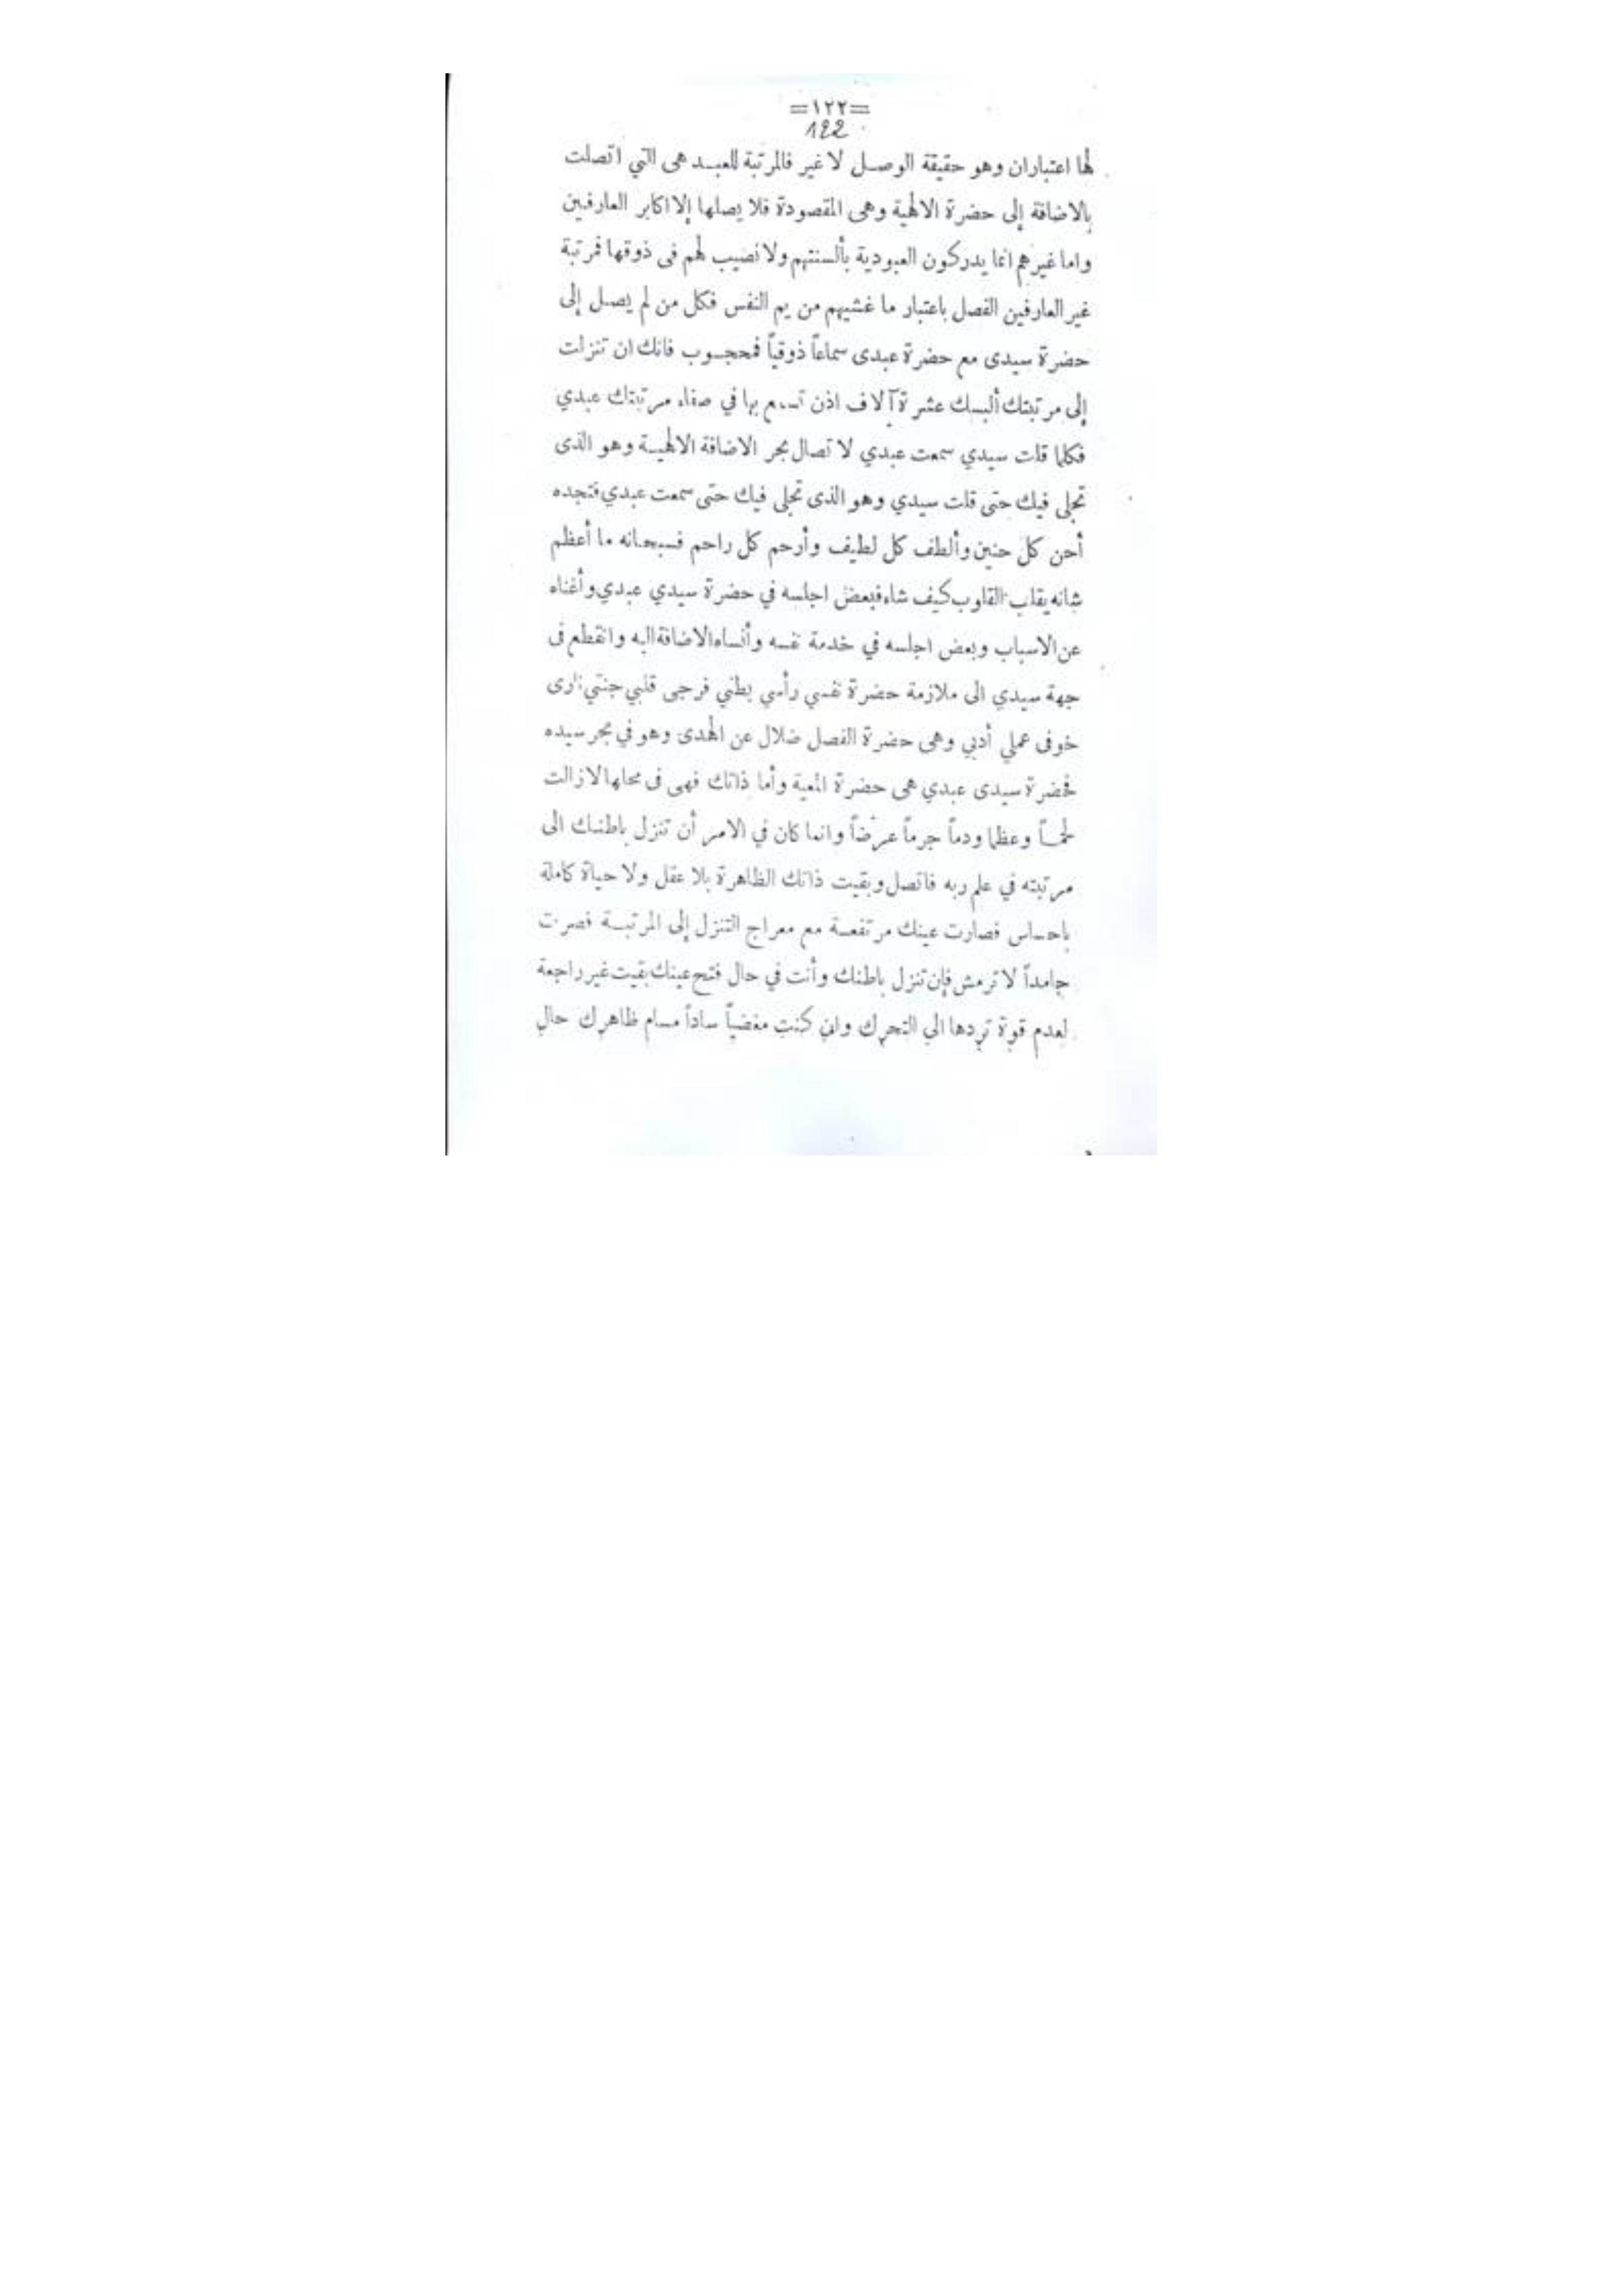 =١٢٢=
122
لها اعتباران وهو حقيقة الوصل لا غير فالمرتبة للعبد هى التي اتصلت
بالاضافة إلى حضرة الالهية وهى المقصودة فلا يصلها إلا اكابر العارفين
واما غيرهم انما يدركون العبودية بألسنتهم ولا نصيب لهم فى ذوقها فمرتبة
غير العارفين الفصل باعتبار ما غشيهم من يم النفس فكل من لم يصل إلى
حضرة سيدى مع حضرة عبدى سماعاً ذوقياً فمحجوب فانك ان تنزلت
إلى مرتبتك ألبسك عشرة آلاف اذن تسمع بها في صفاء مرتبتك عبدي
فكلما قلت سيدي سمعت عبدي لا تصال بحر الاضافة الالهية وهو الذى
تجلى فيك حتى قلت سيدي وهو الذى تجلى فيك حتى سمعت عبدي فتجده
أحن كل حنين وألطف كل لطيف وأرحم كل راحم فسبحانه ما أعظم
شانه يقلب القلوب كيف شاء فبعض اجلسه في حضرة سيدي عبدي وأغناه
عن الاسباب وبعض اجلسه في خدمة نفسه وأنساه الاضافة اليه وانقطع فى
جهة سيدي الى ملازمة حضرة نفسي رأسي بطني فرجى قلبي جنتي نارى
خوفى عملي أدبي وهى حضرة الفصل ضلال عن الهدى وهو في بحر سيده
فحضرة سيدى عبدي هى حضرة المعية وأما ذاتك فهى فى محلها لازالت
لحماً وعظما ودماً جرماً عرضاً وانما كان في الامر أن تنزل باطنك الى
مرتبته في علم ربه فاتصل وبقيت ذاتك الظاهرة بلا عقل ولا حياة كاملة
باحساس فصارت عينك مرتفعة مع معراج التنزل إلى المرتبة فصرت
جامداً لا ترمش فإن تنزل باطنك وأنت في حال فتح عينك بقيت غير راجعة
لعدم قوة تردها الي التحرك وان كنت مغضياً ساداً مسام ظاهرك حال